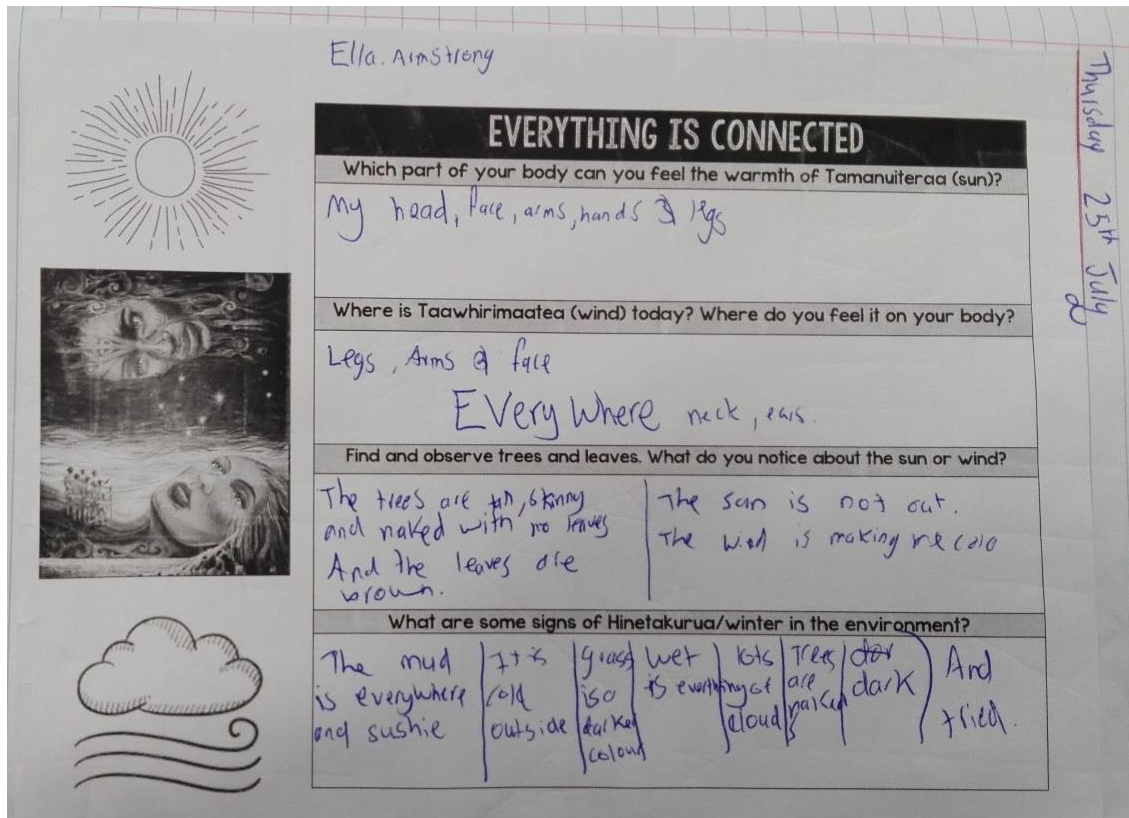 Ella. Armstrong
Thursday 25th July
EVERYTHING IS CONNECTED
Which part of your body can you feel the warmth of Tamanuiteraa (sun)?
My head, face, arms, hands & legs
Where is Taawhirimaatea (wind) today? Where do you feel it on your body?
Legs, Arms & face
EVery Where neck, ears.
Find and observe trees and leaves. What do you notice about the sun or wind?
The trees are , skinny
and naked with no leaves
And the leaves are
brown.
The sun is not out.
The wind is making me cold
What are some signs of Hinetakurua/winter in the environment?
The mud
is everywhere
and sushie
It is
cold
outside
grass
is a
darker
colour
wet
is everything
lots
of
cloud
Trees
are
naked
dark
And
tried.